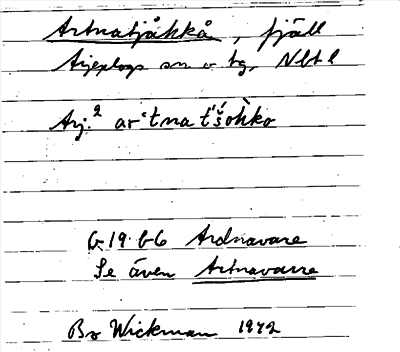 Artnatjåkkå, fjäll
Arjeplogs sn o tg, Nbt l
Arj.² arˈtnatˈšoh̀ko
G. 19 66 Ardnavare
Se även Artnavarre
Bo Wickman 1942